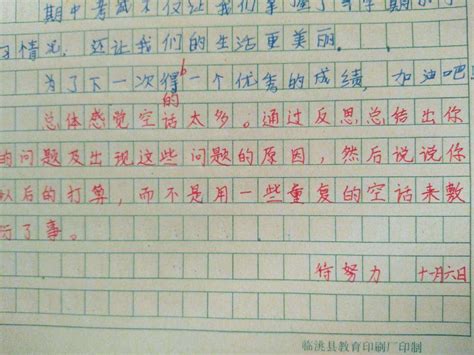 期中考试不仅让我们掌握了
习情况，还让我们的生活更美丽。
为了下一次得一个优秀的成绩，加油吧
的
总体感觉空话太多。通过反思总结出你
的问题及出现这些问题的原因，然后说说你
以后的打算，而不是用一些重复的空话来敷
衍了事。
待努力 十一月六日
临洮县教育印刷厂印制